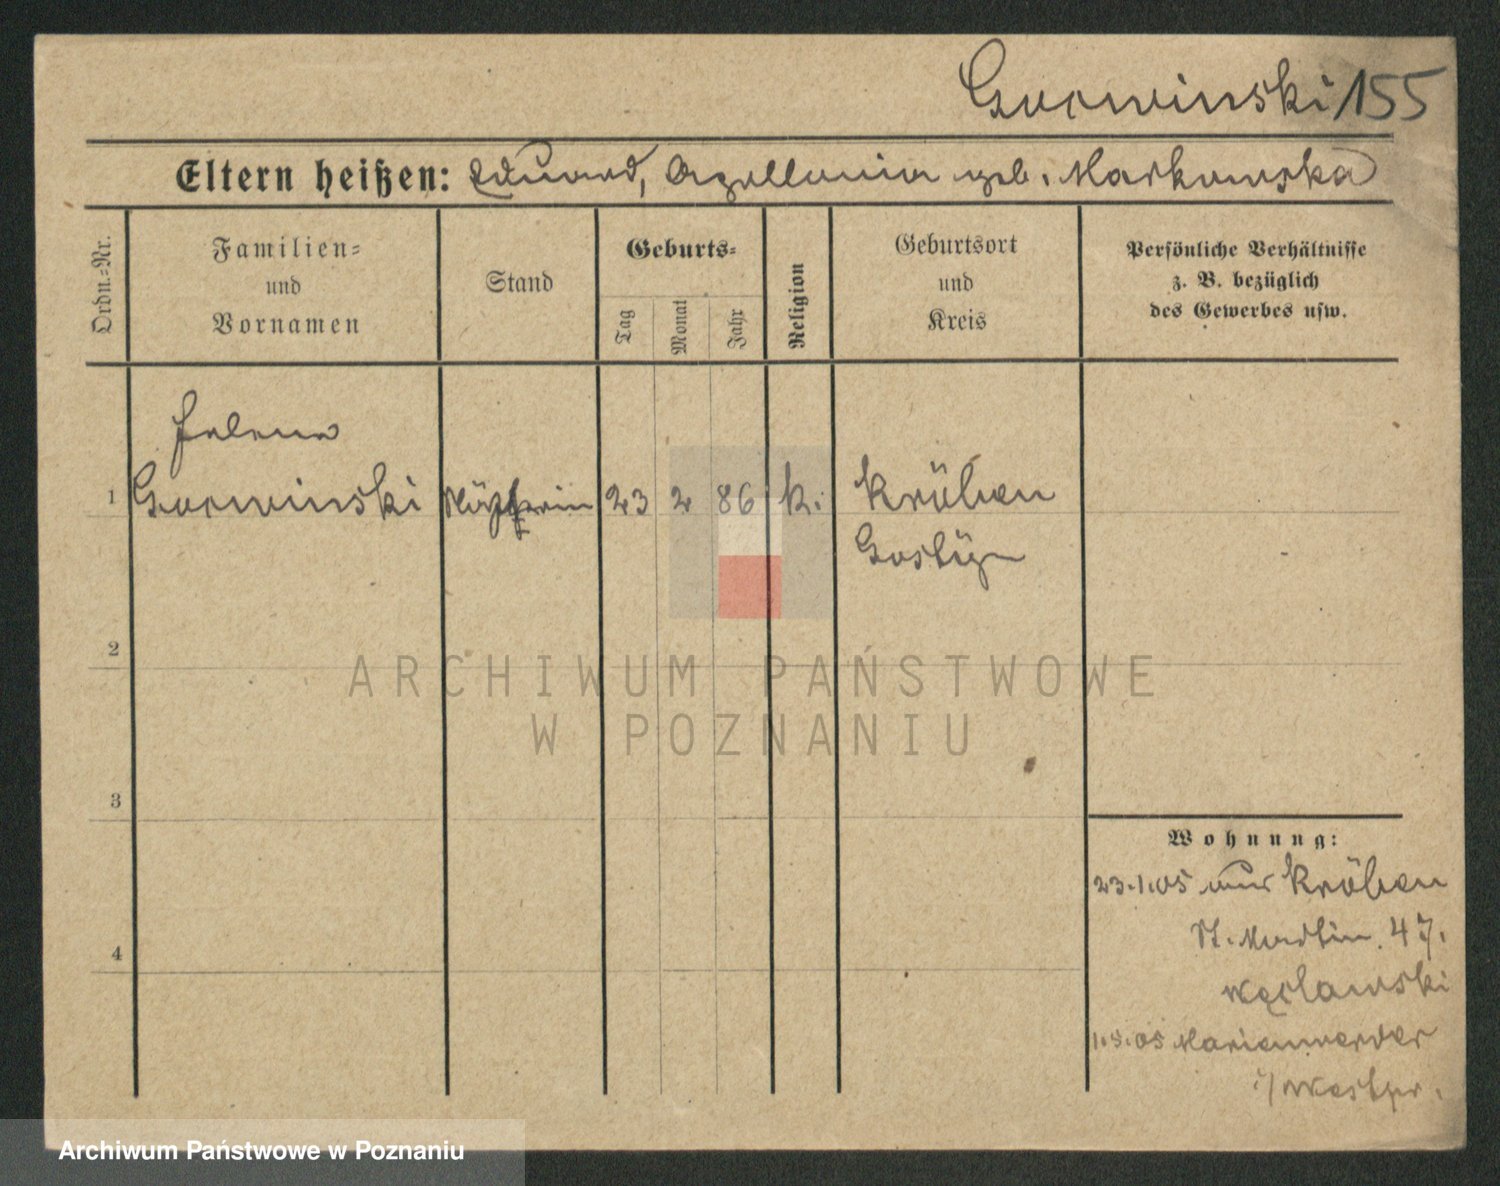 Gorwinski 155
Eltern heißen: Eduard, Apollonia geb. Markowska
Ordn.-Nr.
Familien-
und
Vornamen
Stand
Geburts-
Tag
Monat
Jahr
Religion
Geburtsort
und
Kreis
Persönliche Verhältnisse
z. B. bezüglich
des Gewerbes usw.
Helena
1 Gorwinski Näherin 23 2 86 k. Kröben
Gostyn
2
3
4
Wohnung:
23.1.05 aus Kröben
St. Martin 47.
Węclawski
1.5.05 Marienwerder
i/Westpr.
ARCHIWUM PAŃSTWOWE
W POZNANIU
Archiwum Państwowe w Poznaniu